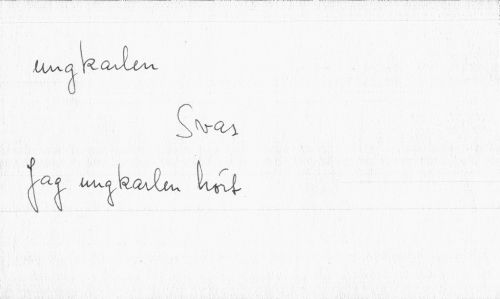 ungkarlen
Svas
Jag ungkarlen hört